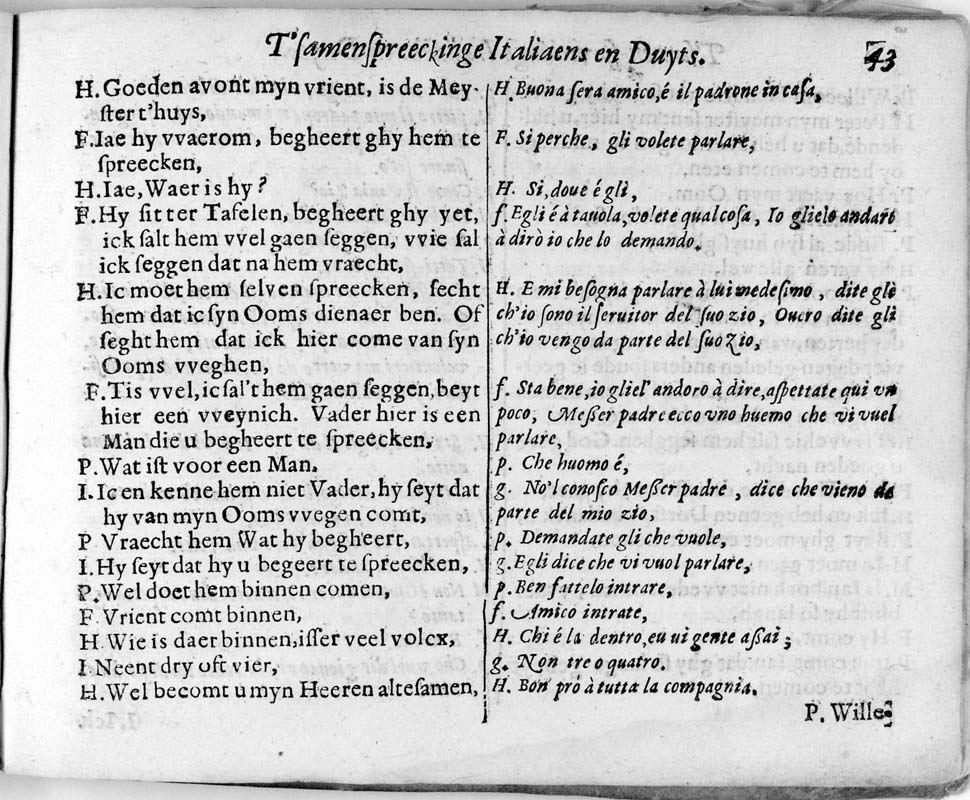 T'ſamenſpreeckinge Italiaens en Duyts.
43
H. Goeden avont myn vrient, is de Mey-
ſter t'huys,
F. Iae hy vvaerom, begheert ghy hem te
ſpreecken,
H. Iae, Waer is hy?
F. Hy ſit ter Tafelen, begheert ghy yet,
ick ſalt hem vvel gaen ſeggen, vvie ſal
ick ſeggen dat na hem vraecht,
H. Ic moet hem ſelven ſpreecken, ſecht
hem dat ic ſyn Ooms dienaer ben. Of
ſeght hem dat ick hier come van ſyn
Ooms vveghen,
F. Tis vvel, ic ſal't hem gaen ſeggen, beyt
hier een vveynich. Vader hier is een
Man die u begheert te ſpreecken,
P. Wat iſt voor een Man.
I. Ic en kenne hem niet Vader, hy ſeyt dat
hy van myn Ooms vvegen comt,
P Vraecht hem Wat hy begheert,
I. Hy ſeyt dat hy u begeert te ſpreecken,
P. Wel doet hem binnen comen,
F Vrient comt binnen,
H Wie is daer binnen, iſſer veel volcx,
I. Neent dry oft vier,
H. Wel becomt u myn Heeren alteſamen,
H. Buona ſera amico, é il padrone in caſa,
F. Si perche, gli volete parlare,
H. Si, doue é gli,
f. Egli é à tauola, volete qual coſa, Io glielo andarò
à dirò io che lo demando.
H. E mi beſogna parlare à lui medeſimo, dite glé
ch'io ſono il ſeruitor del ſuo zio, Ouero dite gli
ch'io vengo da parte del ſuo Zio,
f. Sta bene, io gliel' andoro à dire, aſpettate qui vn
poco, Meſſer padre ecco vno huemo che vi vuel
parlare,
p. Che huomo é,
g. No'l conoſco Meſſer padre, dice che vieno da
parte del mio zio,
p. Demandate gli che vuole,
g. Egli dice che vi vuol parlare,
p. Ben fattelo intrare,
f. Amico intrate,
H. Chi é la dentro, eu ui gente aſſai;
g. Non tre o quatro.
H. Bon pro à tutta la compagnia.
P. Wille